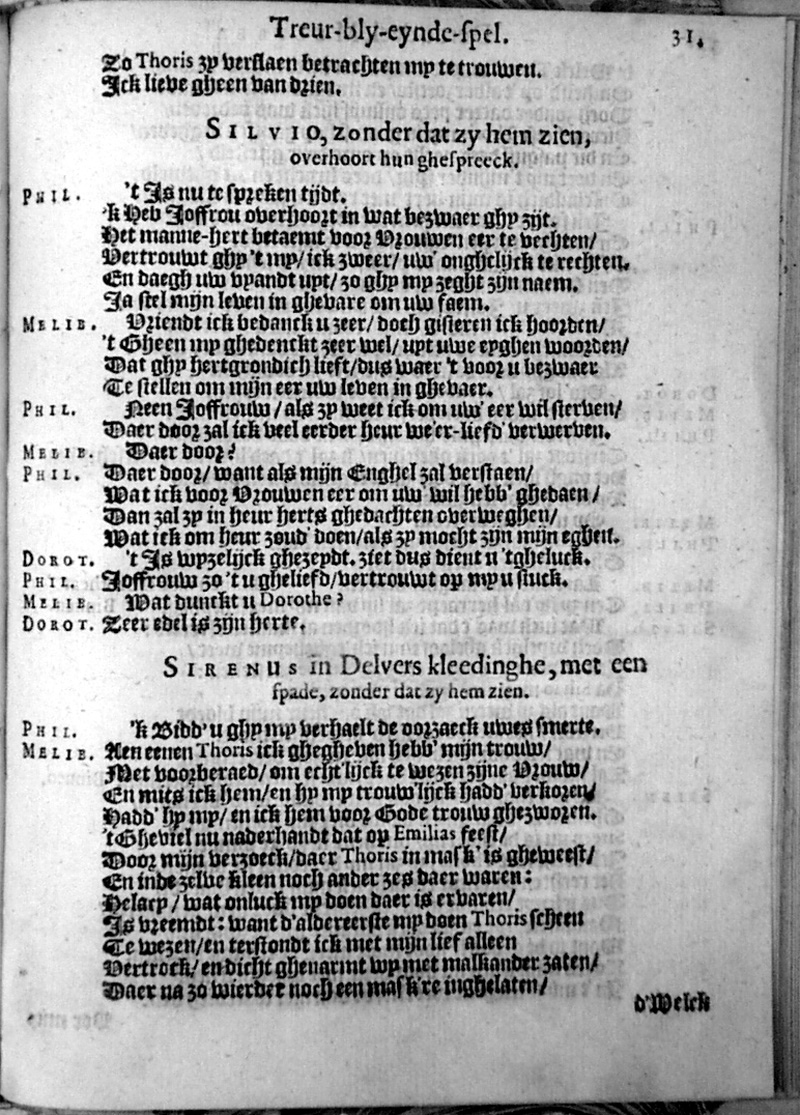 Treur-bly-eynde-spel. 31.
Zo Thoris zy verslaen betrachten my te trouwen.
Ick lieve gheen van drien.
SILVIO, zonder dat zy hem zien,
overhoort hun ghespreeck.
PHIL. 't Is nu te spreken tijdt.
'k Heb Joffrou overhoort in wat bezwaer ghy zijt.
Het manne-hert betaemt voor Vrouwen eer te vechten/
Vertrouwt ghy 't my/ ick zweer/ uw' onghelijck te rechten.
En daegh uw vyandt uyt/ zo ghy my zeght zijn naem.
Ja stel mijn leven in ghevare om uw faem.
MELIB. Vriendt ick bedanck u zeer/ doch gisteren ick hoorden/
't Gheen my ghedenckt zeer wel/ uyt uwe eyghen woorden/
Dat ghy hertgrondich lieft/ dus waer 't voor u bezwaer
Te stellen om mijn eer uw leven in ghevaer.
PHIL. Neen Joffrouw/ als zy weet ick om uw' eer wil sterven/
Daer door zal ick veel eerder heur we'er-liefd' verwerven.
MELIB. Daer door?
PHIL. Daer door/ want als mijn Enghel zal verstaen/
Wat ick voor Vrouwen eer om uw' wil hebb' ghedaen/
Dan zal zy in heur herts ghedachten overweghen/
Wat ick om heur zoud' doen/ als zy mocht zijn mijn eghen.
DOROT. 't Is wyzelijck ghezeydt. ziet dus dient u 'tgheluck.
PHIL. Joffrouw zo 't u gheliefd/ vertrouwt op my u stuck.
MELIB. Wat dunckt u Dorothe?
DOROT. Zeer edel is zijn herte.
SIRENUS in Delvers kleedinghe, met een
spade, zonder dat zy hem zien.
PHIL. 'k Bidd' u ghy my verhaelt de oorzaeck uwes smerte.
MELIB. Aen eenen Thoris ick ghegheven hebb' mijn trouw/
Met voorberaed/ om echt'lijck te wezen zijne Vrouw/
En mits ick hem/ en hy my trouw'lijck hadd' verkoren/
Hadd' hy my/ en ick hem voor Gode trouw ghezworen.
't Gheviel nu naderhandt dat op Emilias feest/
Door mijn verzoeck/ daer Thoris in mask' is gheweest/
En in de zelve kleen noch ander zes daer waren:
Helaey/ wat onluck my doen daer is ervaren/
Is vreemdt: want d'aldereerste my doen Thoris scheen
Te wezen/ en terstondt ick met mijn lief alleen
Vertrock/ en dicht ghenarmt wy met malkander zaten/
Daer na zo wierder noch een mask're inghelaten/
d'Welck